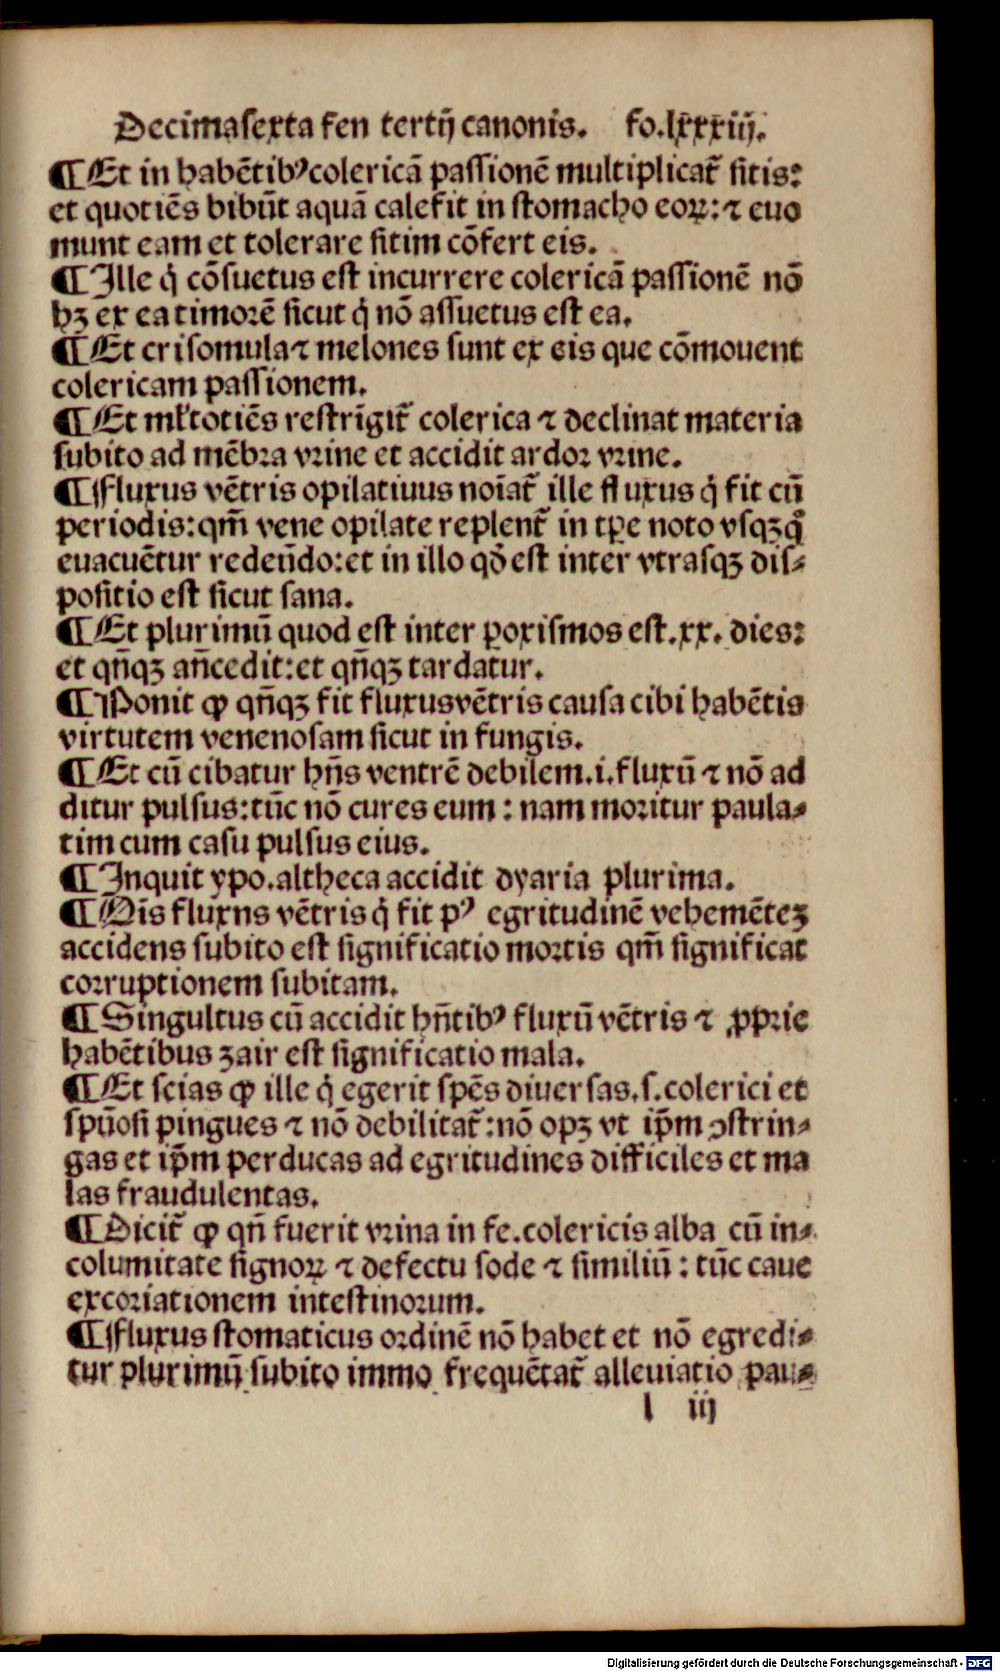 Decimasexta fen tertij canonis. fo.lxxxiij.
¶Et in habētibꝰ colericā passionē multiplicat᷑ sitis:
et quotiēs bibūt aquā calefit in stomacho eoꝝ: ⁊ euo
munt eam et tolerare sitim cōfert eis.
¶Ille q̇ cōsuetus est incurrere colericā passionē nō
hꝫ ex ea timorē sicut q̇ nō assuetus est ea.
¶Et crisomula ⁊ melones sunt ex eis que cōmouent
colericam passionem.
¶Et ml̓totiēs restrīgit᷑ colerica ⁊ declinat materia
subito ad mēbra vrine et accidit ardoꝛ vrine.
¶Fluxus vētris opilatiuus noīat᷑ ille fluxus q̇ fit cū
periodis: qm̄ vene opilate replent᷑ in tꝑe noto vsqꝫ q̊
euacuētur redeūdo: et in illo qđ est inter vtrasqꝫ dis⸗
positio est sicut sana.
¶Et plurimū quod est inter ꝑoxismos est .xx. dies:
et qn̄qꝫ an̄cedit: et qn̄qꝫ tardatur.
¶Ponit ꝙ qn̄qꝫ fit fluxus vētris causa cibi habētis
virtutem venenosam sicut in fungis.
¶Et cū cibatur hn̄s ventrē debilem .i. fluxū ⁊ nō ad
ditur pulsus: tūc nō cures eum : nam moꝛitur paula⸗
tim cum casu pulsus eius.
¶Inquit ypo. altheca accidit dyaria plurima.
¶Oīs fluxns vētris q̇ fit pꝰ egritudinē vehemētez
accidens subito est significatio moꝛtis qm̄ significat
coꝛruptionem subitam.
¶Singultus cū accidit hn̄tibꝰ fluxū vētris ⁊ ꝓpꝛie
habētibus zair est significatio mala.
¶Et scias ꝙ ille q̇ egerit spēs diuersas .s. colerici et
spūosi pingues ⁊ nō debilitat᷑: nō opꝫ vt ip̄m ꝯstrin⸗
gas et ip̄m perducas ad egritudines difficiles et ma
las fraudulentas.
¶Dicit᷑ ꝙ qn̄ fuerit vrina in fe. colericis alba cū in⸗
columitate signoꝝ ⁊ defectu sode ⁊ similiū : tūc caue
excoꝛiationem intestinoꝛum.
¶Fluxus stomaticus oꝛdinē nō habet et nō egredi⸗
tur plurimū subito immo frequētat᷑ alleuiatio pau⸗
l iij
Digitalisierung gefördert durch die Deutsche Forschungsgemeinschaft - DFG